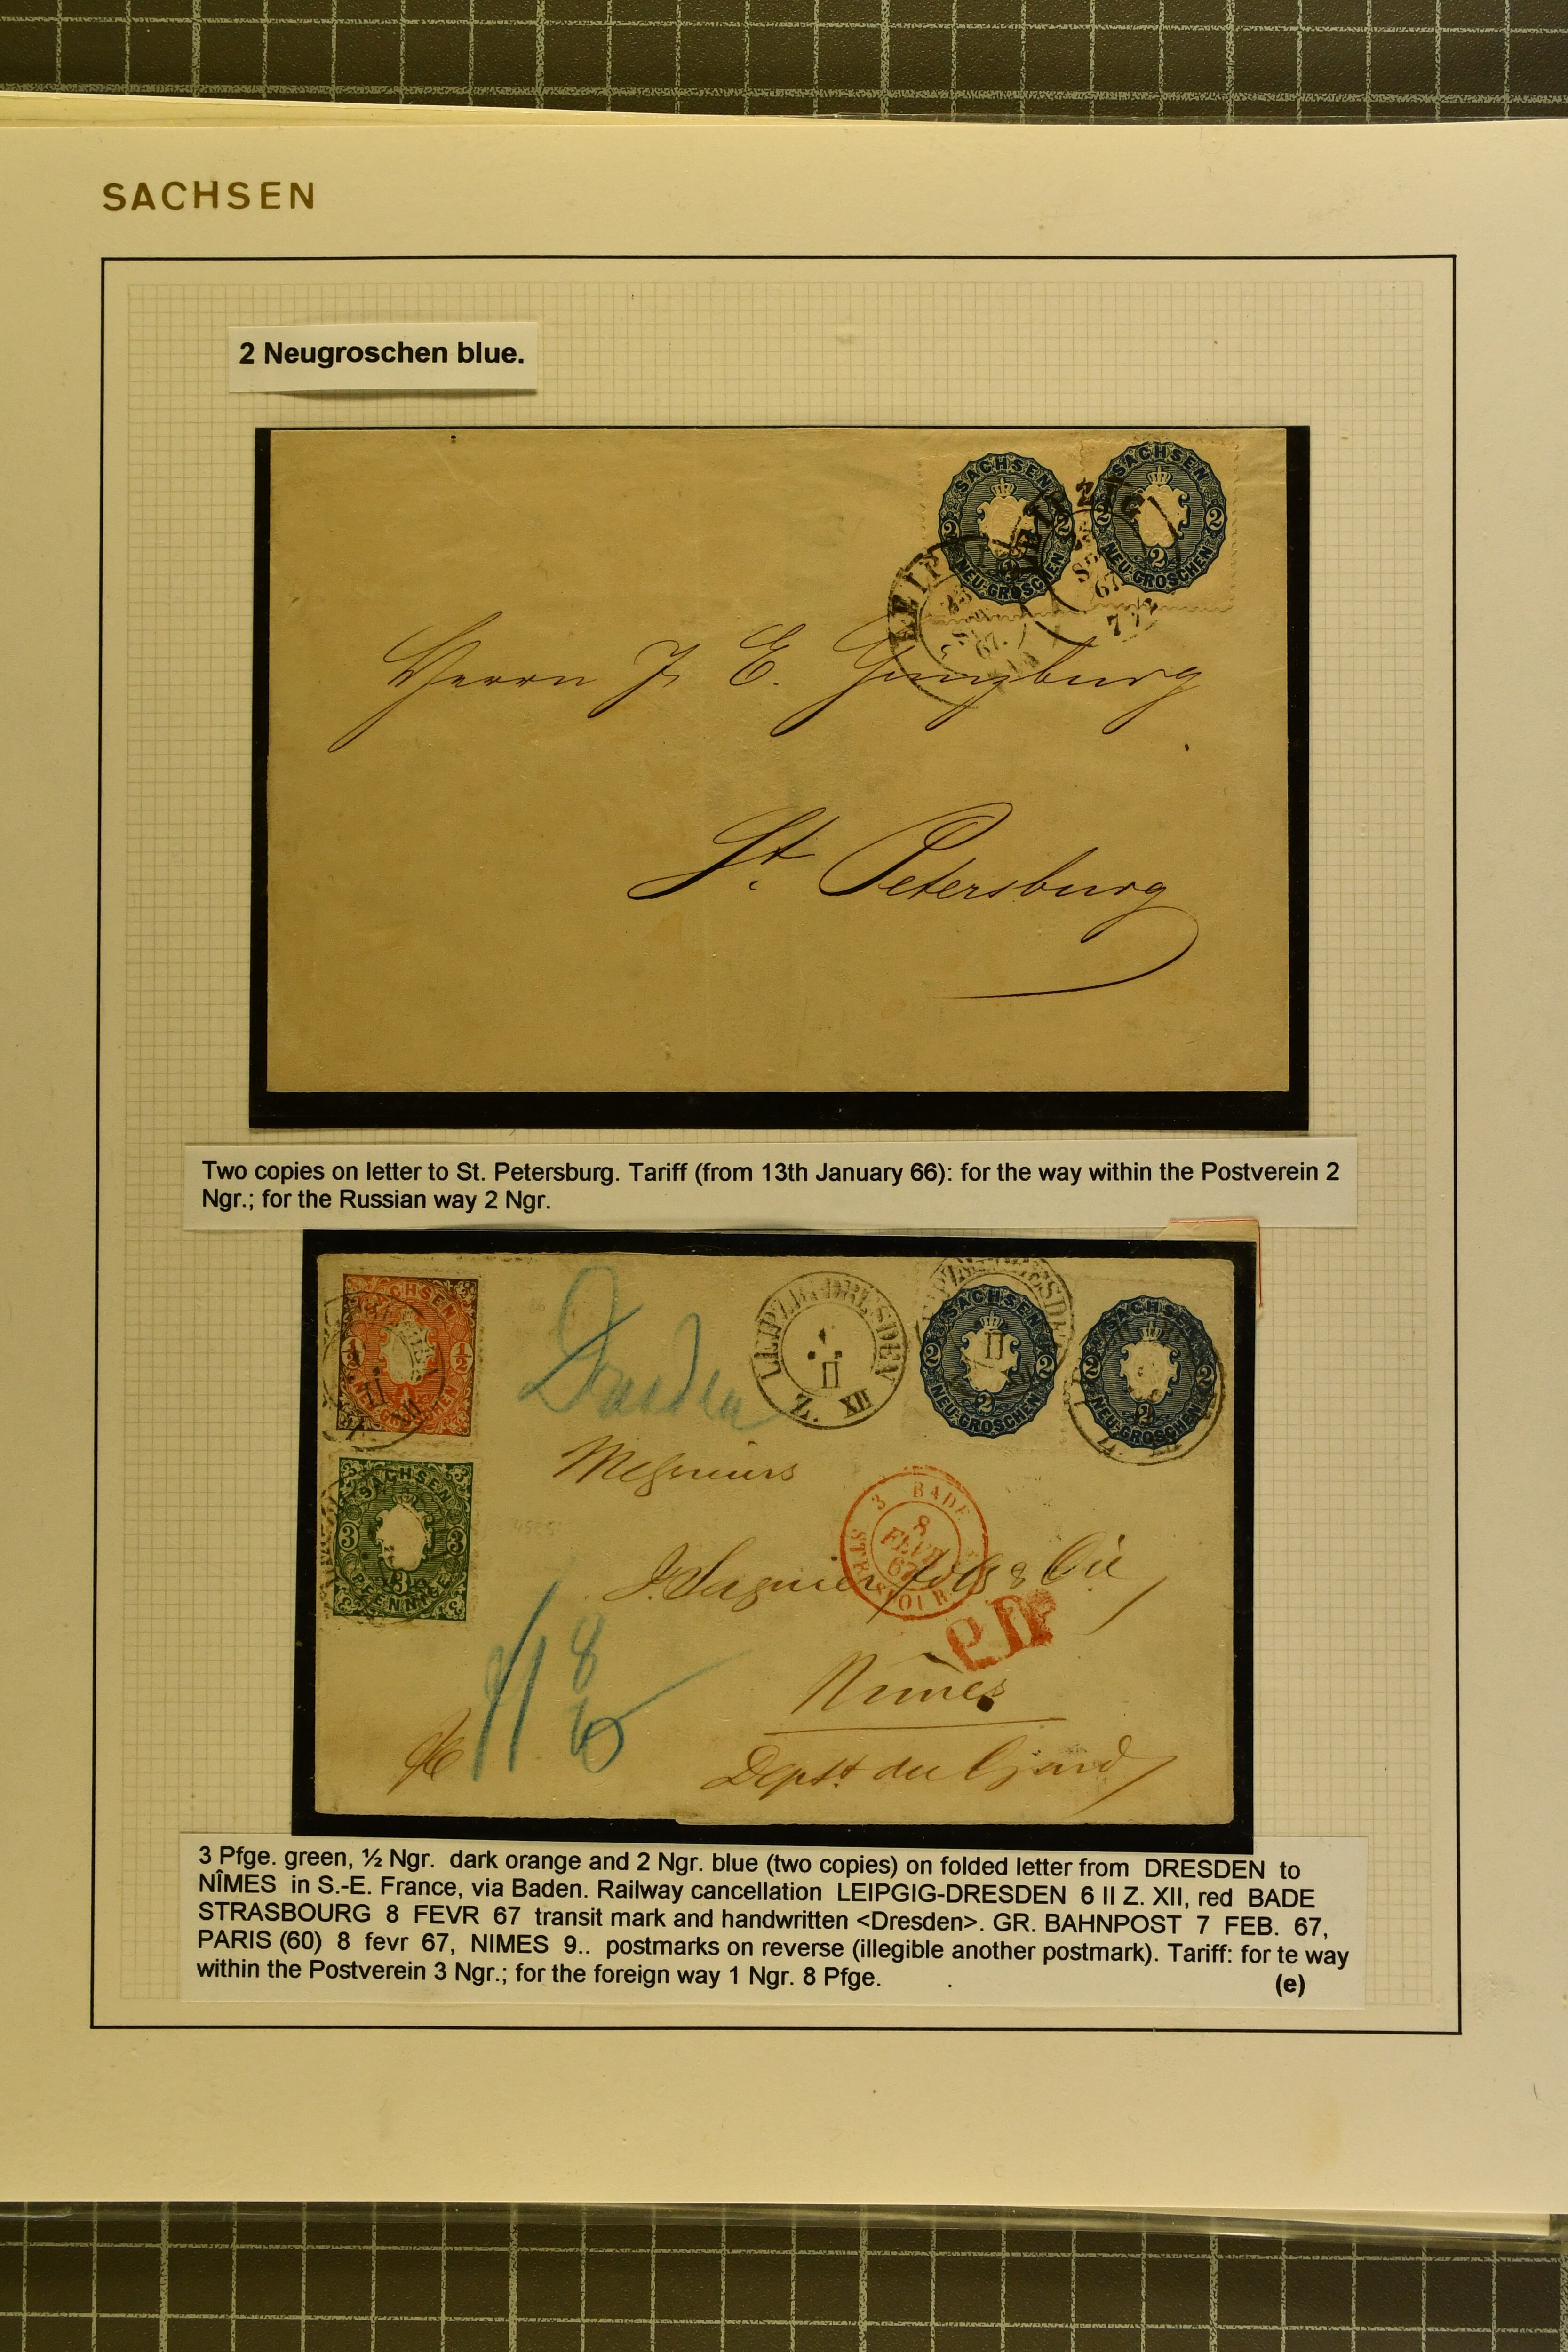 SACHSEN
2 Neugroschen blue.
SACHSEN
2 2
2
NEU-GROSCHEN
SACHSEN
2 2
2
NEU-GROSCHEN
LEIPZIG
67
LEIP
67.
Herrn J. E. Günzburg
St. Petersburg
Two copies on letter to St. Petersburg. Tariff (from 13th January 66): for the way within the Postverein 2
Ngr.; for the Russian way 2 Ngr.
SACHSEN
½ ½
Dresden
LEIPZIG-DRESDEN
II
Z. XII
SACHSEN
2 2
2
NEU-GROSCHEN
SACHSEN
2 2
2
NEU-GROSCHEN
Messieurs
SACHSEN
3 3
3
PFENNIGE
3 BADE
8
FEVR
67
STRASBOURG
& Cie
P.D.
8
Nîmes
Dept. du Gard
3 Pfge. green, ½ Ngr. dark orange and 2 Ngr. blue (two copies) on folded letter from DRESDEN to
NÎMES in S.-E. France, via Baden. Railway cancellation LEIPGIG-DRESDEN 6 II Z. XII, red BADE
STRASBOURG 8 FEVR 67 transit mark and handwritten <Dresden>. GR. BAHNPOST 7 FEB. 67,
PARIS (60) 8 fevr 67, NIMES 9.. postmarks on reverse (illegible another postmark). Tariff: for te way
within the Postverein 3 Ngr.; for the foreign way 1 Ngr. 8 Pfge.
(e)